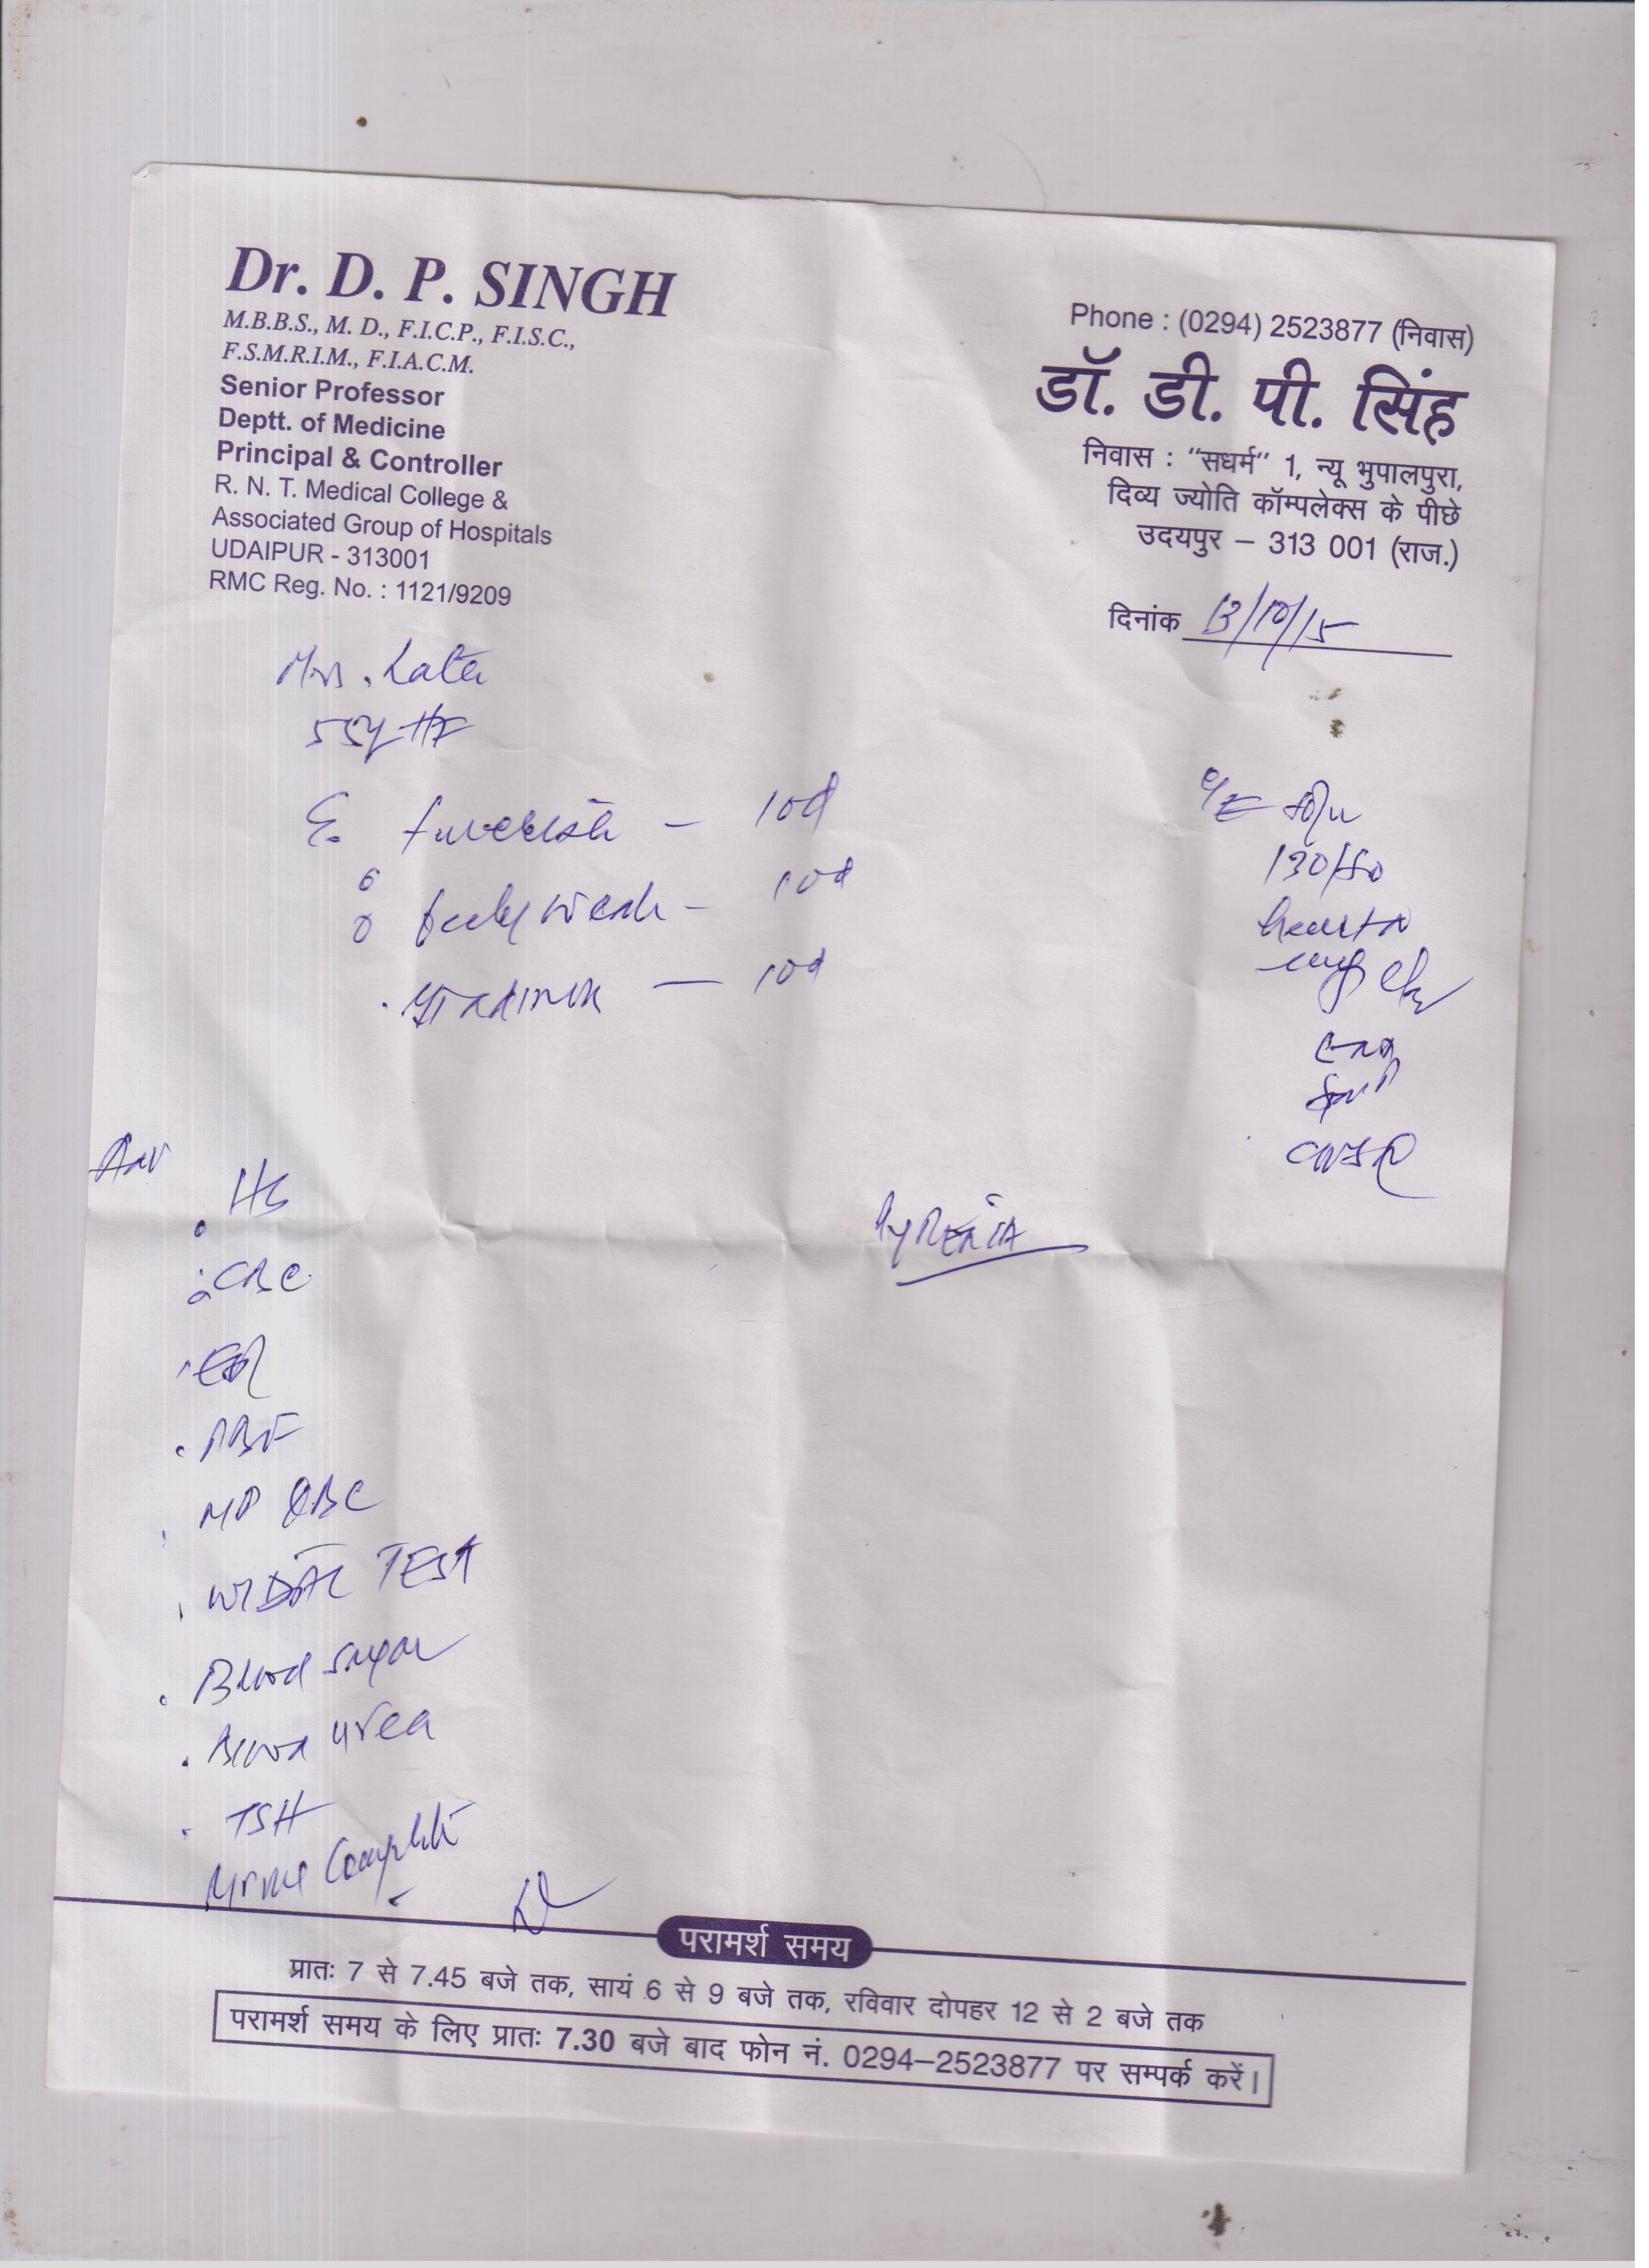 Dr. D. P. SINGH
M.B.B.S., M. D., F.I.C.P., F.I.S.C.,
F.S.M.R.I.M., F.I.A.C.M.
Senior Professor
Deptt. of Medicine
Principal & Controller
R. N. T. Medical College &
Associated Group of Hospitals
UDAIPUR - 313001
RMC Reg. No. : 1121/9209
Phone : (0294) 2523877 (निवास)
डॉ. डी. पी. सिंह
निवास : "सधर्म" 1, न्यू भुपालपुरा,
दिव्य ज्योति कॉम्पलेक्स के पीछे
उदयपुर – 313 001 (राज.)
दिनांक 13/10/15
Mrs. Lata
55y
feverish – 10d
weak – 10d
— 10d
130/80
PyREXIA
Hb
CBC
ESR
PBF
MP QBC
WIDAL TEST
Blood sugar
Blood urea
TSH
Urine Complete
परामर्श समय
प्रातः 7 से 7.45 बजे तक, सायं 6 से 9 बजे तक, रविवार दोपहर 12 से 2 बजे तक
परामर्श समय के लिए प्रातः 7.30 बजे बाद फोन नं. 0294–2523877 पर सम्पर्क करें।